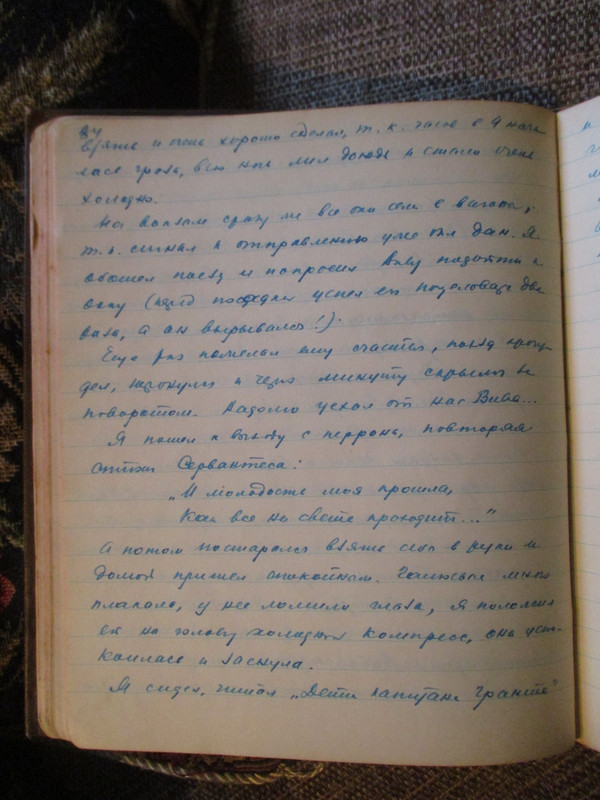 84
взять и очень хорошо сделал, т. к. часов в 9 нача
лась гроза, всю ночь лил дождь и стало очень
холодно.
На вокзале сразу же все они сели в вагоны,
т. к. сигнал к отправлению уже был дан. Я
обошел поезд и попросил Виву подойти к
окну (перед посадкой успел его поцеловать два
раза, а он вырывался!).
Еще раз пожелал ему счастья, поезд
дел, тронулся и через минуту скрылся за
поворотом. Надолго уехал от нас Вива...
Я пошел к выходу с перрона, повторяя
стихи Сервантеса:
„И молодость моя прошла,
Как все на свете проходит..."
А потом постарался взять себя в руки и
домой пришел спокойным. много
плакала, у нее ломило глаза, я положил
ей на голову холодный компресс, она успо-
коилась и заснула.
Я сидел, читал „Дети капитана Гранта"